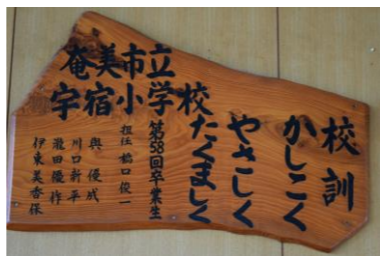 校訓
かしこく
やさしく
たくましく
奄美市立
宇宿小学校
第58回卒業生
担任 橋口俊一
與優成
川口新平
瀧田優作
伊東美香保